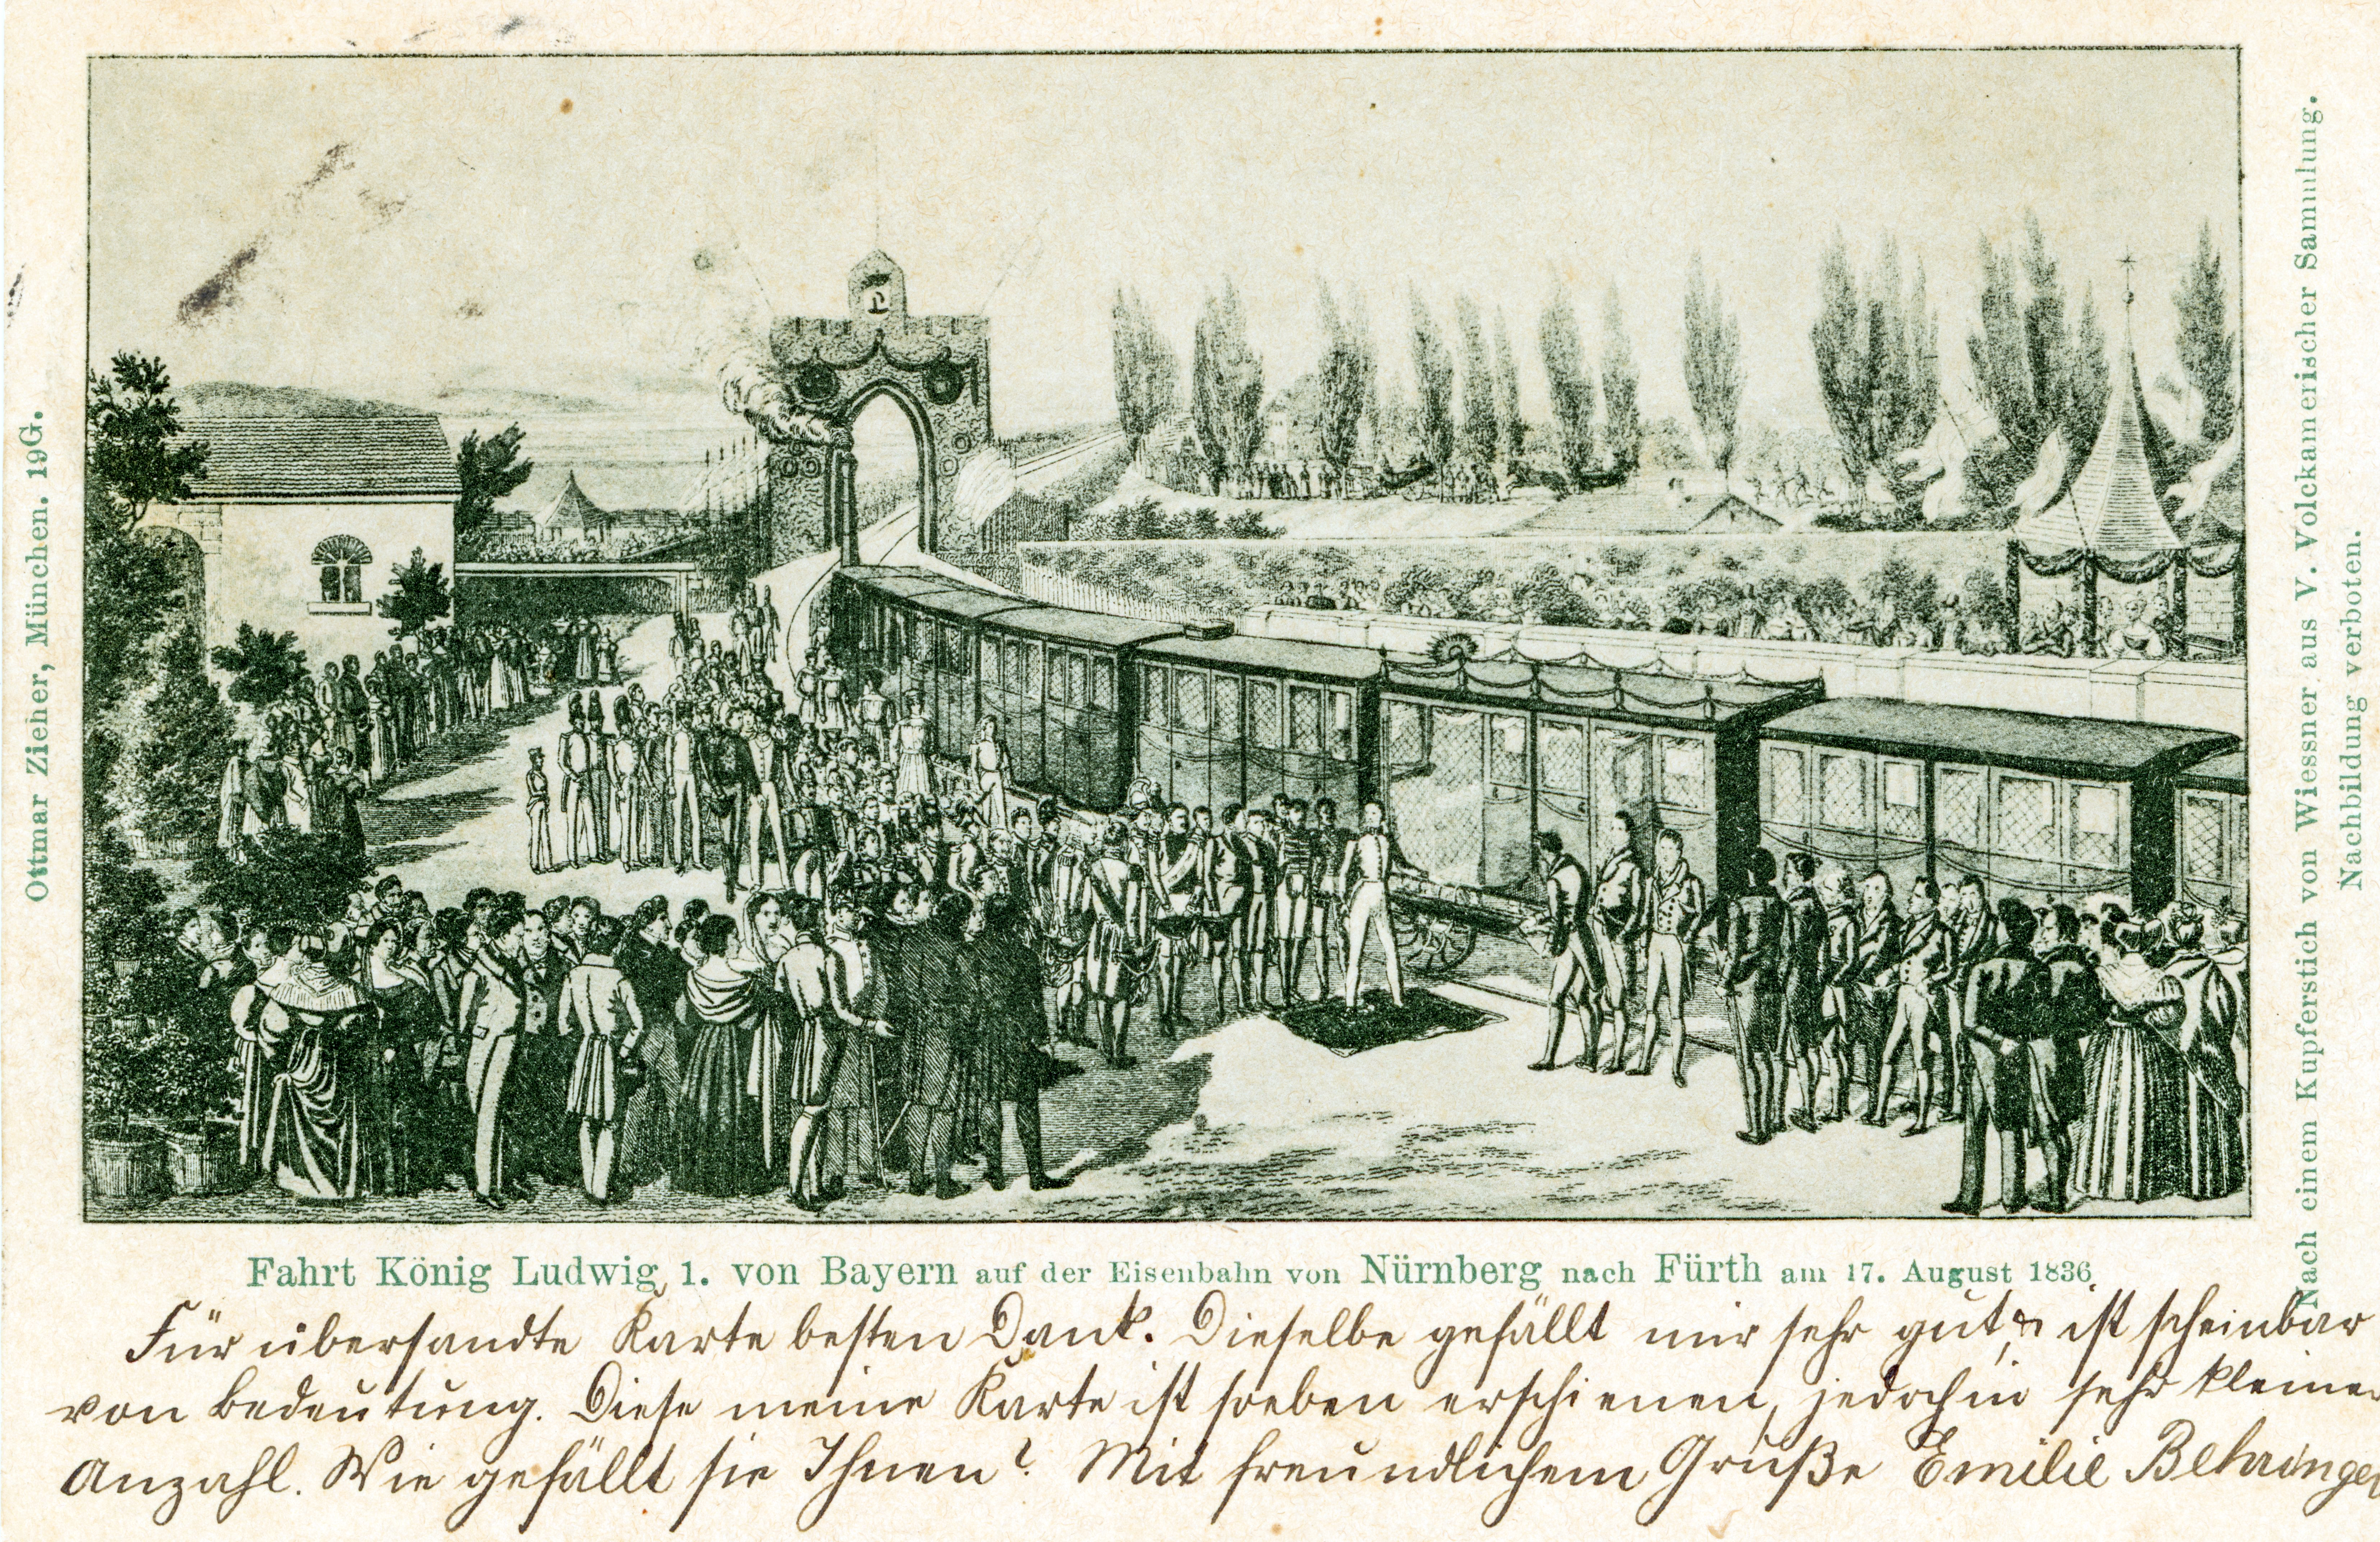 Ottmar Zieher, München. 19G.
L
Nach einem Kupferstich von Wiessner aus v. Volckamerischer Sammlung.
Nachbildung verboten.
Fahrt König Ludwig 1. von Bayern auf der Eisenbahn von Nürnberg nach Fürth am 17. August 1836
Für übersandte Karte besten Dank. Dieselbe gefällt mir sehr gut, & ist scheinbar
von Bedeutung. Diese meine Karte ist soeben erschienen, jedoch in sehr kleiner
Anzahl. Wie gefällt sie Ihnen? Mit freundlichem Gruße Emilie Behringer